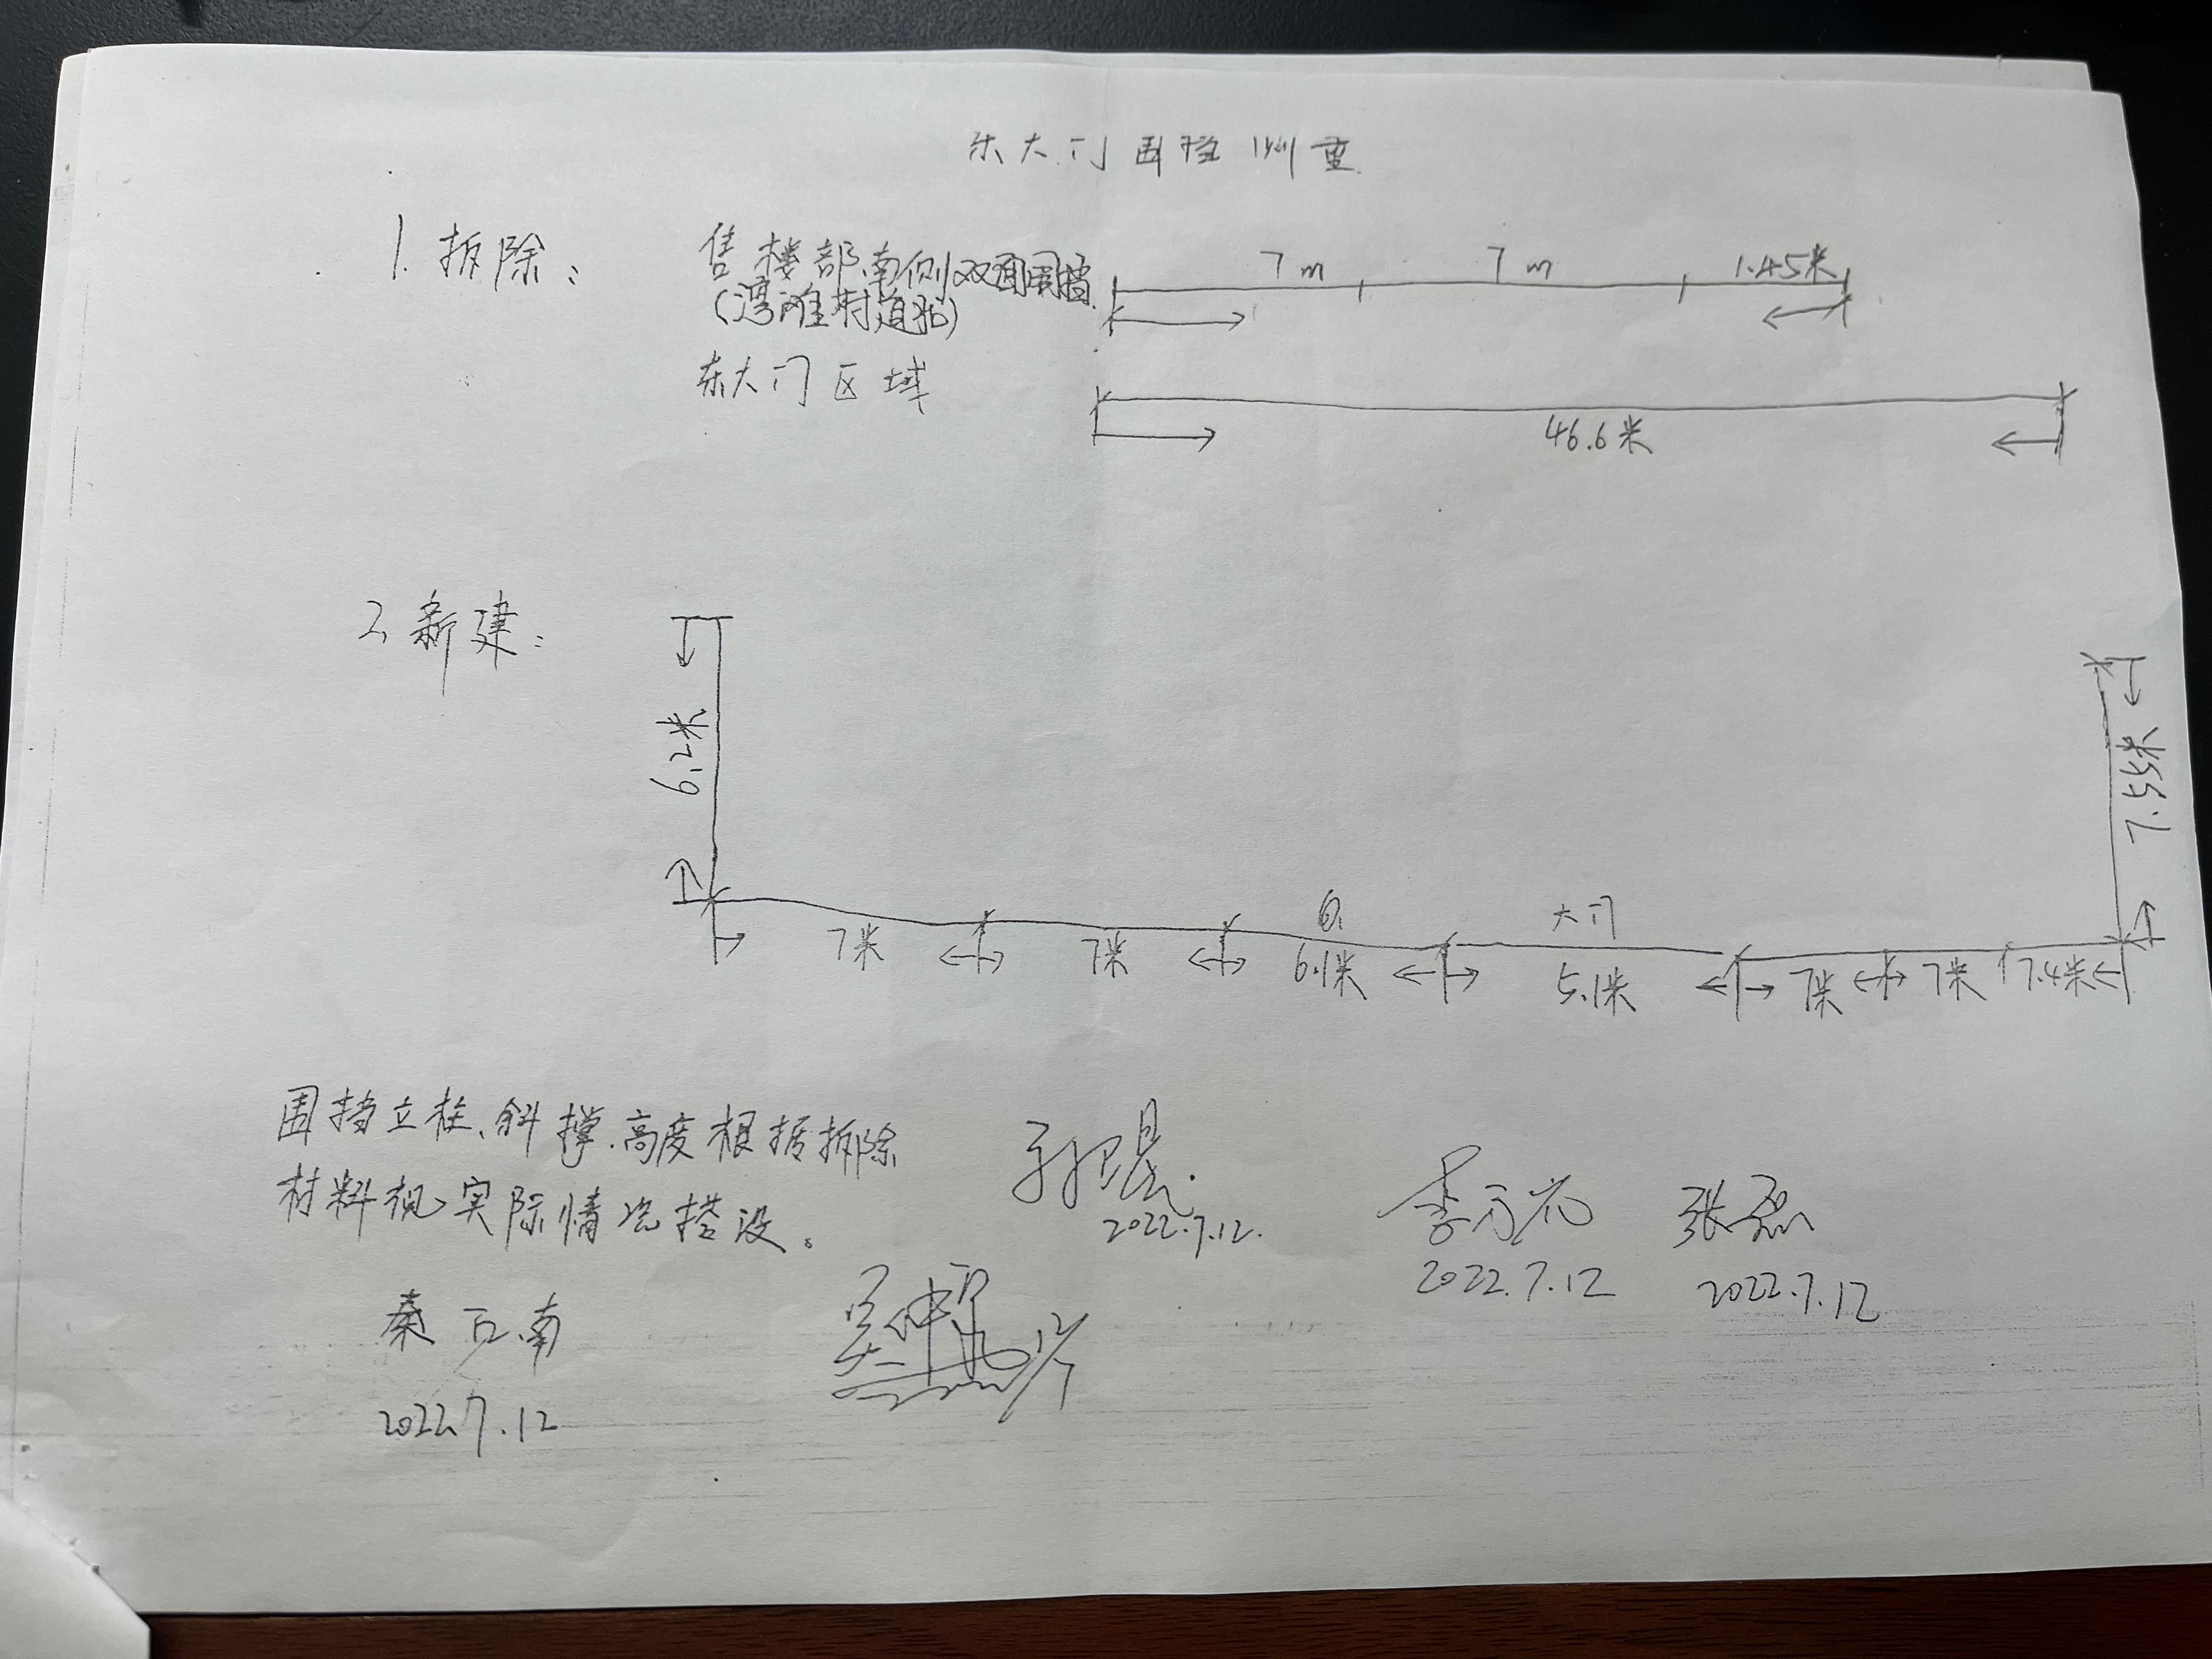 东大门围挡测量
1. 拆除：
售楼部南侧双面围挡
7m 7m 1.45米
(湾滩村道路)
东大门区域
46.6米
2、新建：
6.2米
7.55米
6.
大门
7米 7米 6.1米 5.1米 7米 7米 7.4米
围挡立柱、斜撑、高度根据拆除
材料视实际情况搭设。
2022.7.12.
张磊
2022.7.12 2022.7.12
秦 南
12/7
2022.7.12